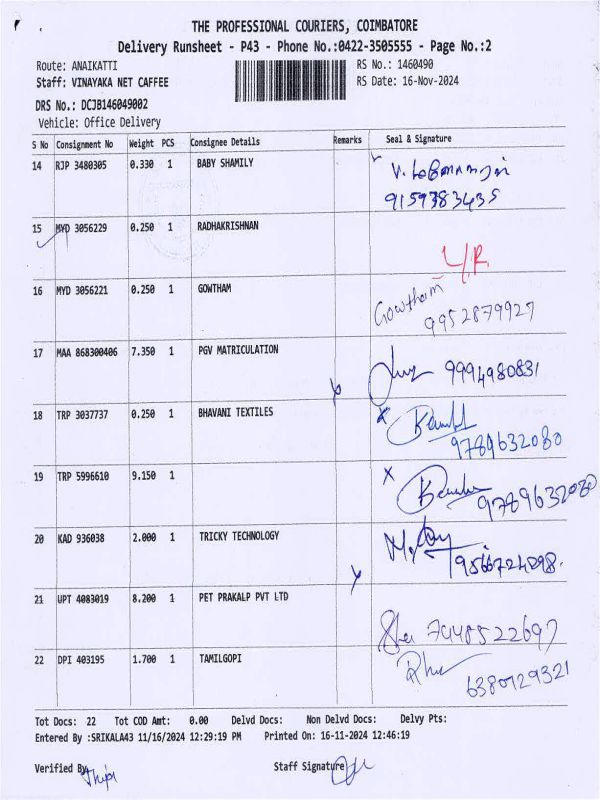 THE PROFESSIONAL COURIERS, COIMBATORE
Delivery Runsheet - P43 - Phone No.:0422-3505555 - Page No.:2
Route: ANAIKATTI RS No.: 1460490
Staff: VINAYAKA NET CAFFEE RS Date: 16-Nov-2024
DRS No.: DCJB146049002
Vehicle: Office Delivery
S No Consignment No Weight PCS Consignee Details Remarks Seal & Signature
14 RJP 3480305 0.330 1 BABY SHAMILY
9159383435
15 MYD 3056229 0.250 1 RADHAKRISHNAN
L/R
16 MYD 3056221 0.250 1 GOWTHAM Gowtham
9952879927
17 MAA 868300406 7.350 1 PGV MATRICULATION 9994980831
18 TRP 3037737 0.250 1 BHAVANI TEXTILES
9789632080
19 TRP 5996610 9.150 1
9789632080
20 KAD 936038 2.000 1 TRICKY TECHNOLOGY
9566724098
21 UPT 4083019 8.200 1 PET PRAKALP PVT LTD
7448522697
22 DPI 403195 1.700 1 TAMILGOPI
6380129321
Tot Docs: 22 Tot COD Amt: 0.00 Delvd Docs: Non Delvd Docs: Delvy Pts:
Entered By :SRIKALA43 11/16/2024 12:29:19 PM Printed On: 16-11-2024 12:46:19
Verified By Staff Signature